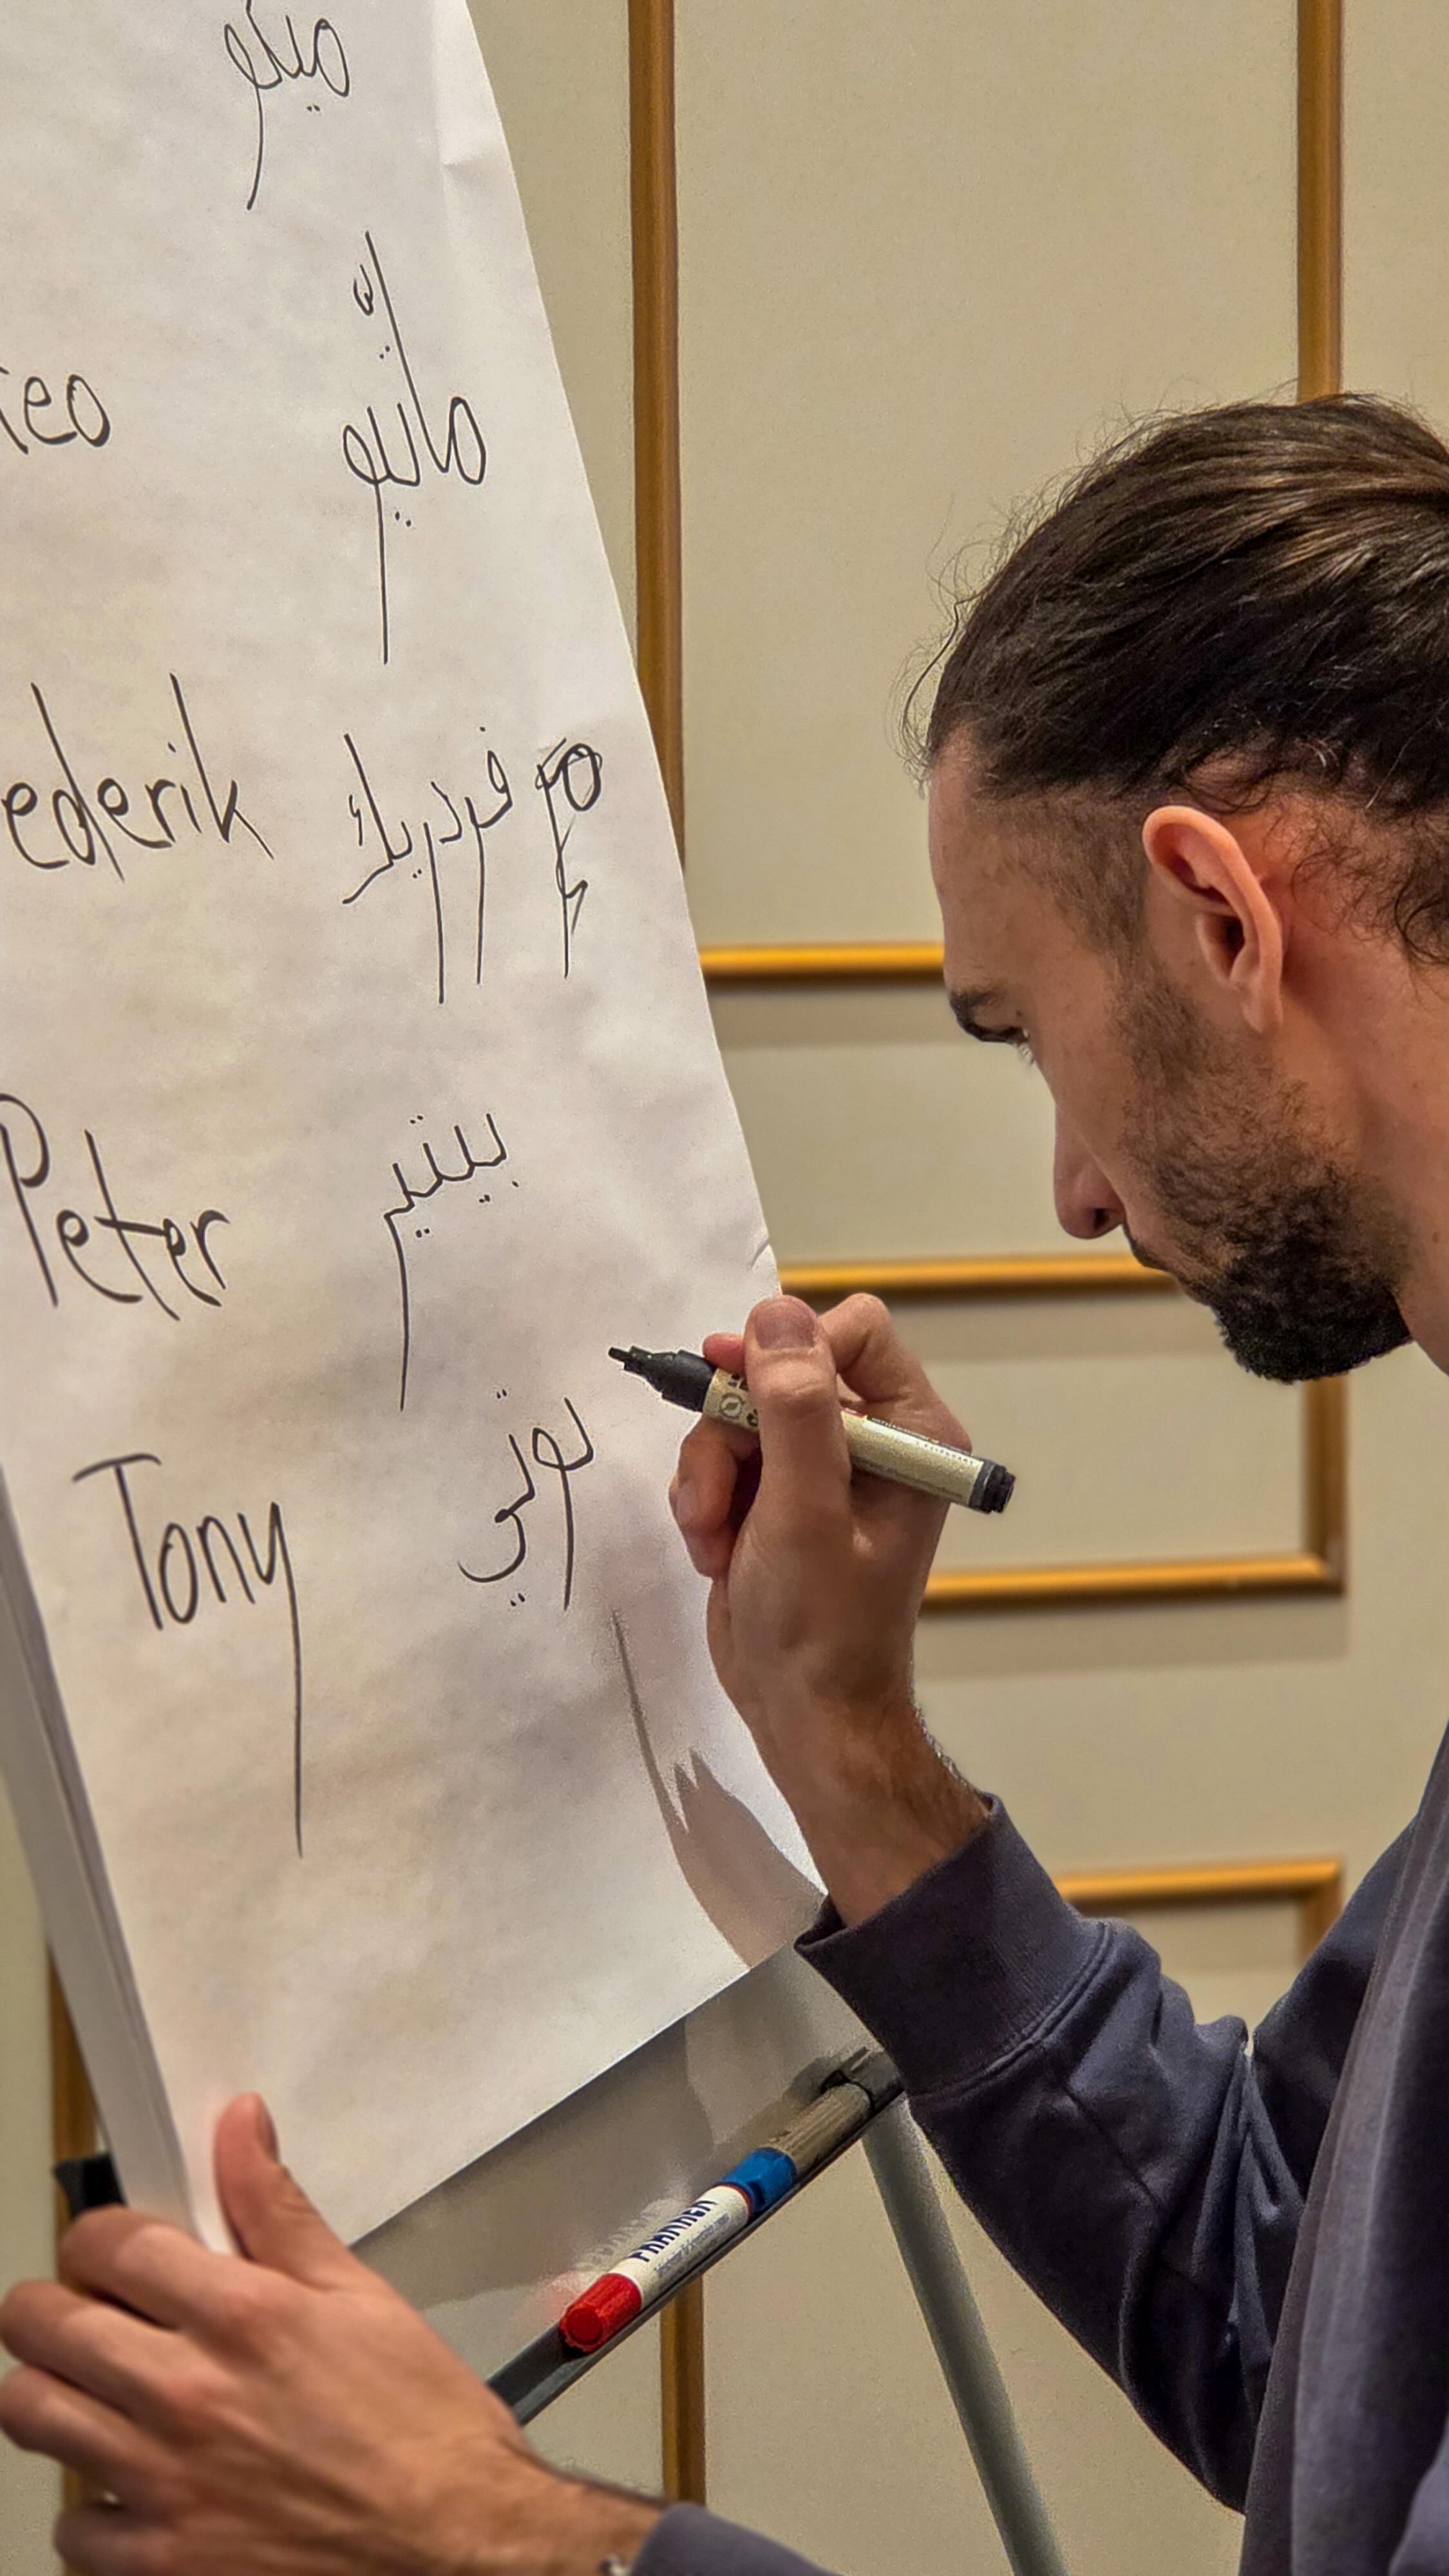 ميكو
eo ماتّيو
ederik فردريك
Peter بيتير
Tony توني